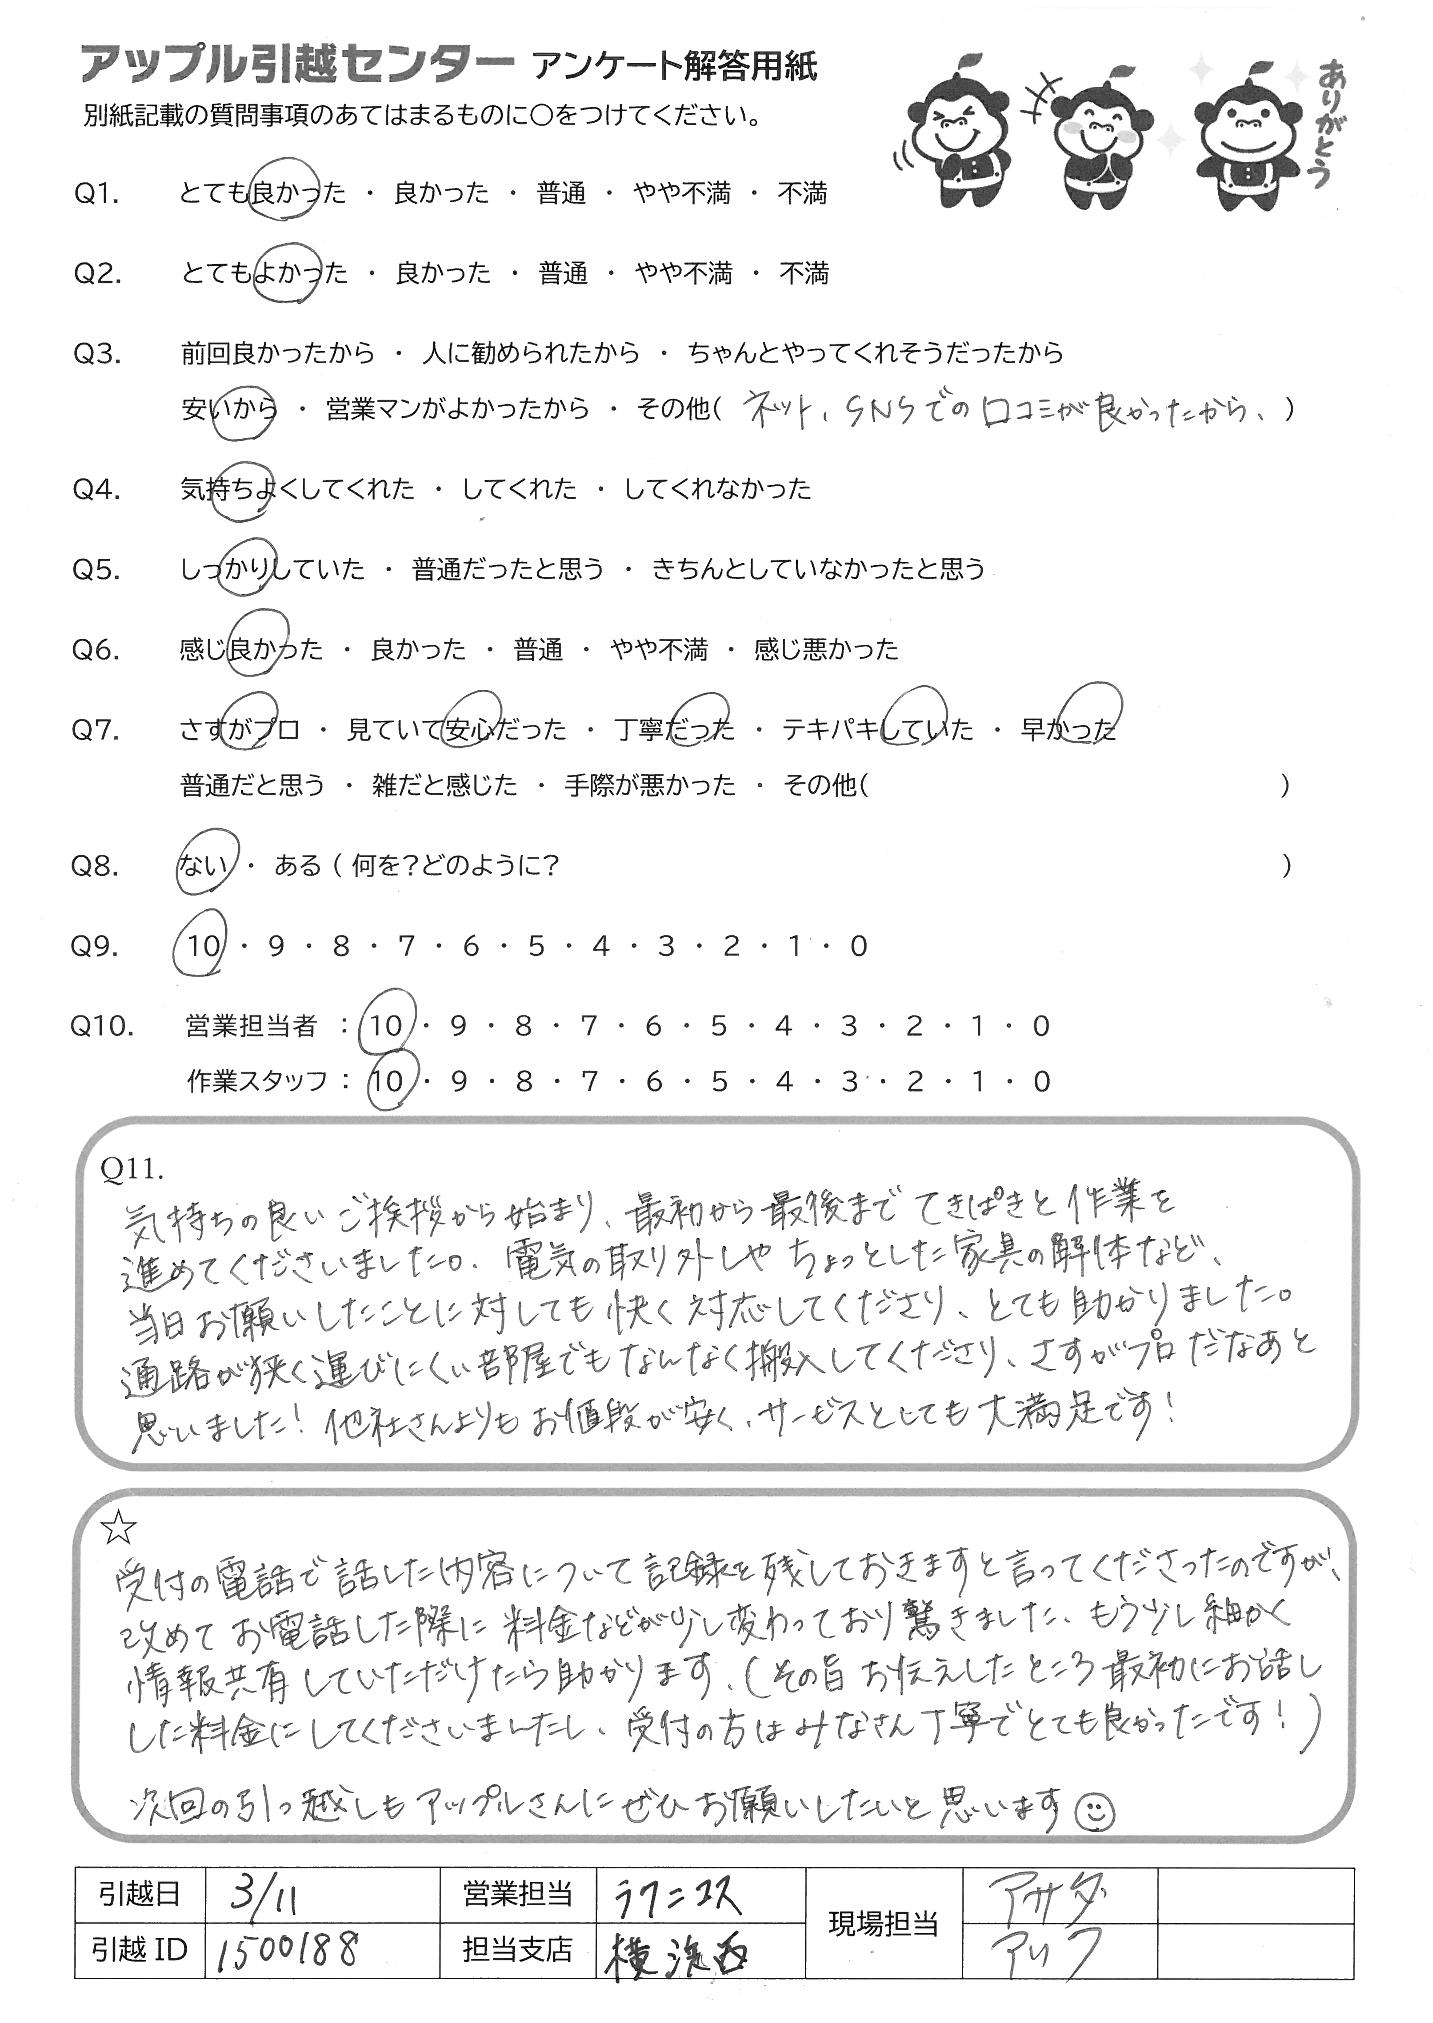 アップル引越センター アンケート解答用紙
別紙記載の質問事項のあてはまるものに○をつけてください。
ありがとう
Q1. とても良かった ・ 良かった ・ 普通 ・ やや不満 ・ 不満
Q2. とてもよかった ・ 良かった ・ 普通 ・ やや不満 ・ 不満
Q3. 前回良かったから ・ 人に勧められたから ・ ちゃんとやってくれそうだったから
安いから ・ 営業マンがよかったから ・ その他( ネット、SNSでの口コミが良かったから、 )
Q4. 気持ちよくしてくれた ・ してくれた ・ してくれなかった
Q5. しっかりしていた ・ 普通だったと思う ・ きちんとしていなかったと思う
Q6. 感じ良かった ・ 良かった ・ 普通 ・ やや不満 ・ 感じ悪かった
Q7. さすがプロ ・ 見ていて安心だった ・ 丁寧だった ・ テキパキしていた ・ 早かった
普通だと思う ・ 雑だと感じた ・ 手際が悪かった ・ その他( )
Q8. ない ・ ある ( 何を?どのように? )
Q9. 10 ・ 9 ・ 8 ・ 7 ・ 6 ・ 5 ・ 4 ・ 3 ・ 2 ・ 1 ・ 0
Q10. 営業担当者 : 10 ・ 9 ・ 8 ・ 7 ・ 6 ・ 5 ・ 4 ・ 3 ・ 2 ・ 1 ・ 0
作業スタッフ : 10 ・ 9 ・ 8 ・ 7 ・ 6 ・ 5 ・ 4 ・ 3 ・ 2 ・ 1 ・ 0
Q11.
気持ちの良いご挨拶から始まり、最初から最後までてきぱきと作業を
進めてくださいました。電気の取り外しやちょっとした家具の解体など、
当日お願いしたことに対しても快く対応してくださり、とても助かりました。
通路が狭く運びにくい部屋でもなんなく搬入してくださり、さすがプロだなあと
思いました!他社さんよりもお値段が安く、サービスとしても大満足です!
☆
受付の電話で話した内容について記録を残しておきますと言ってくださったのですが、
改めてお電話した際に料金などが少し変わっており驚きました、もう少し細かく
情報共有していただけたら助かります、(その旨お伝えしたところ最初にお話し
した料金にしてくださいましたし、受付の方はみなさん丁寧でとても良かったです!)
次回の引っ越しもアップルさんにぜひお願いしたいと思います☺
引越日 3/11 営業担当 ラクニコス 現場担当 アサダ
引越 ID 1500188 担当支店 横浜西 アリフ